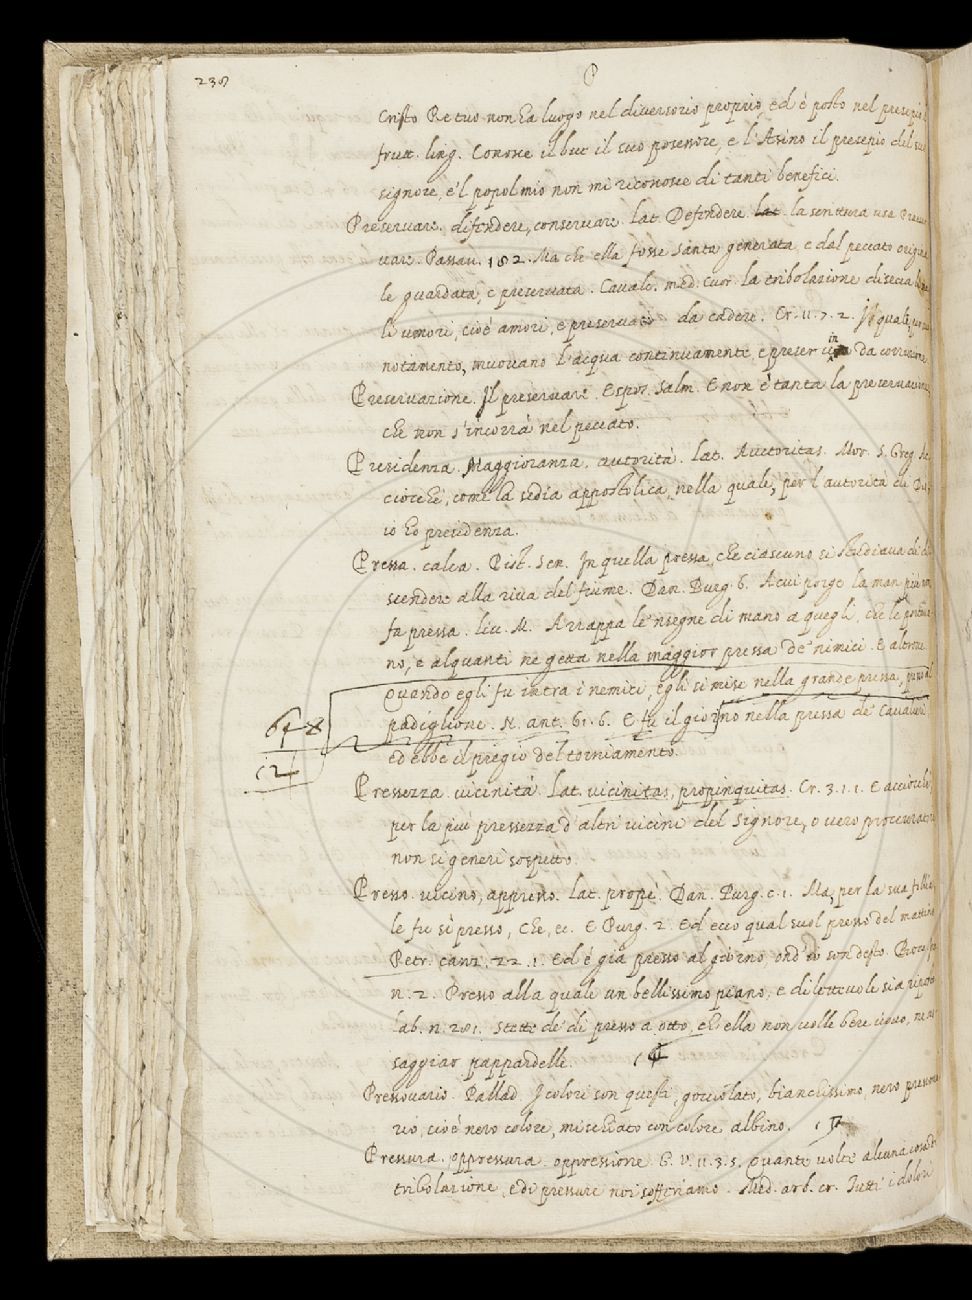 238
P
Cristo Re tuo non ha luogo nel diversorio proprio, ed è posto nel presepio
frutt. ling. Conosce il bue il suo possessore, e l'Asino il presepio del suo
signore, e'l popol mio non mi riconosce di tanti benefici.
Preservare. difendere, conservare. lat. Defendere lat. la scrittura usa
vare. Passav. 182. Ma che ella fosse santa generata e dal peccato
le guardata, e preservata. Cavalc. med. cuor. la tribolazione disecca
li umori, cioè amori, e preservalo da cadere. Cr. 11. 7. 2. Il quale,
notamento, muovano l'acqua continuamente, e preser in da
Preservazione. Il preservare. Espos. Salm. E non è tanta la preservazione,
che non s'incorra nel peccato.
Presidenza. Maggioranza. autorità. lat. Auctoritas. Mor. S. Greg.
cioche, come la sedia appostolica, nella quale, per l'autorità di
io ho presidenza.
Pressa. calca. Rist. Ser. In quella pressa, che ciascuno si studiava di
scendere alla riva del fiume. Dan. Purg. 6. A cui porge la man più non
fa pressa. liv. M. Arrappa le 'nsegne di mano a quegli, che le
no, e alquanti ne getta nella maggior pressa de' nimici. E altrove
Quando egli fu intra i nemici, egli si mise nella grande pressa,
padiglione. N. ant. 61. 6. E fu il giorno nella pressa de' Cavalieri,
ed ebbe il pregio del torniamento.
12
Pressezza. vicinità. Lat. vicinitas, propinquitas. Cr. 3. 1. 1. E acciochè
per la più pressezza d'altri vicini del Signore, o vero procuratore
non si generi sospetto.
Presso. vicino, appresso. lat. prope. Dan. Purg. c. 1. Ma, per la sua follia
le fu sì presso, che, ec. E Purg. 2. Ed ecco qual suol presso del mattino
Petr. canz. 22. 1. Ed è già presso al giorno, ond' io son desto.
n. 2. Presso alla quale un bellissimo piano, e dilettevole sia riposto
lab. n. 281. Stette de' dì presso a otto, ch'ella non volle bere uovo, ne
saggiar pappardelle.
Pressovario. Pallad. I colori son questi, gocciolato, bianchissimo, nero
rio, cioè nero colore, mischiato con colore albino.
Pressura. oppressura. oppressione. G. V. 11. 3. 5. Quante volte alcuna cosa di
tribolazione, e di pressure noi sofferiamo. Med. arb. cr. Tutti i dolori